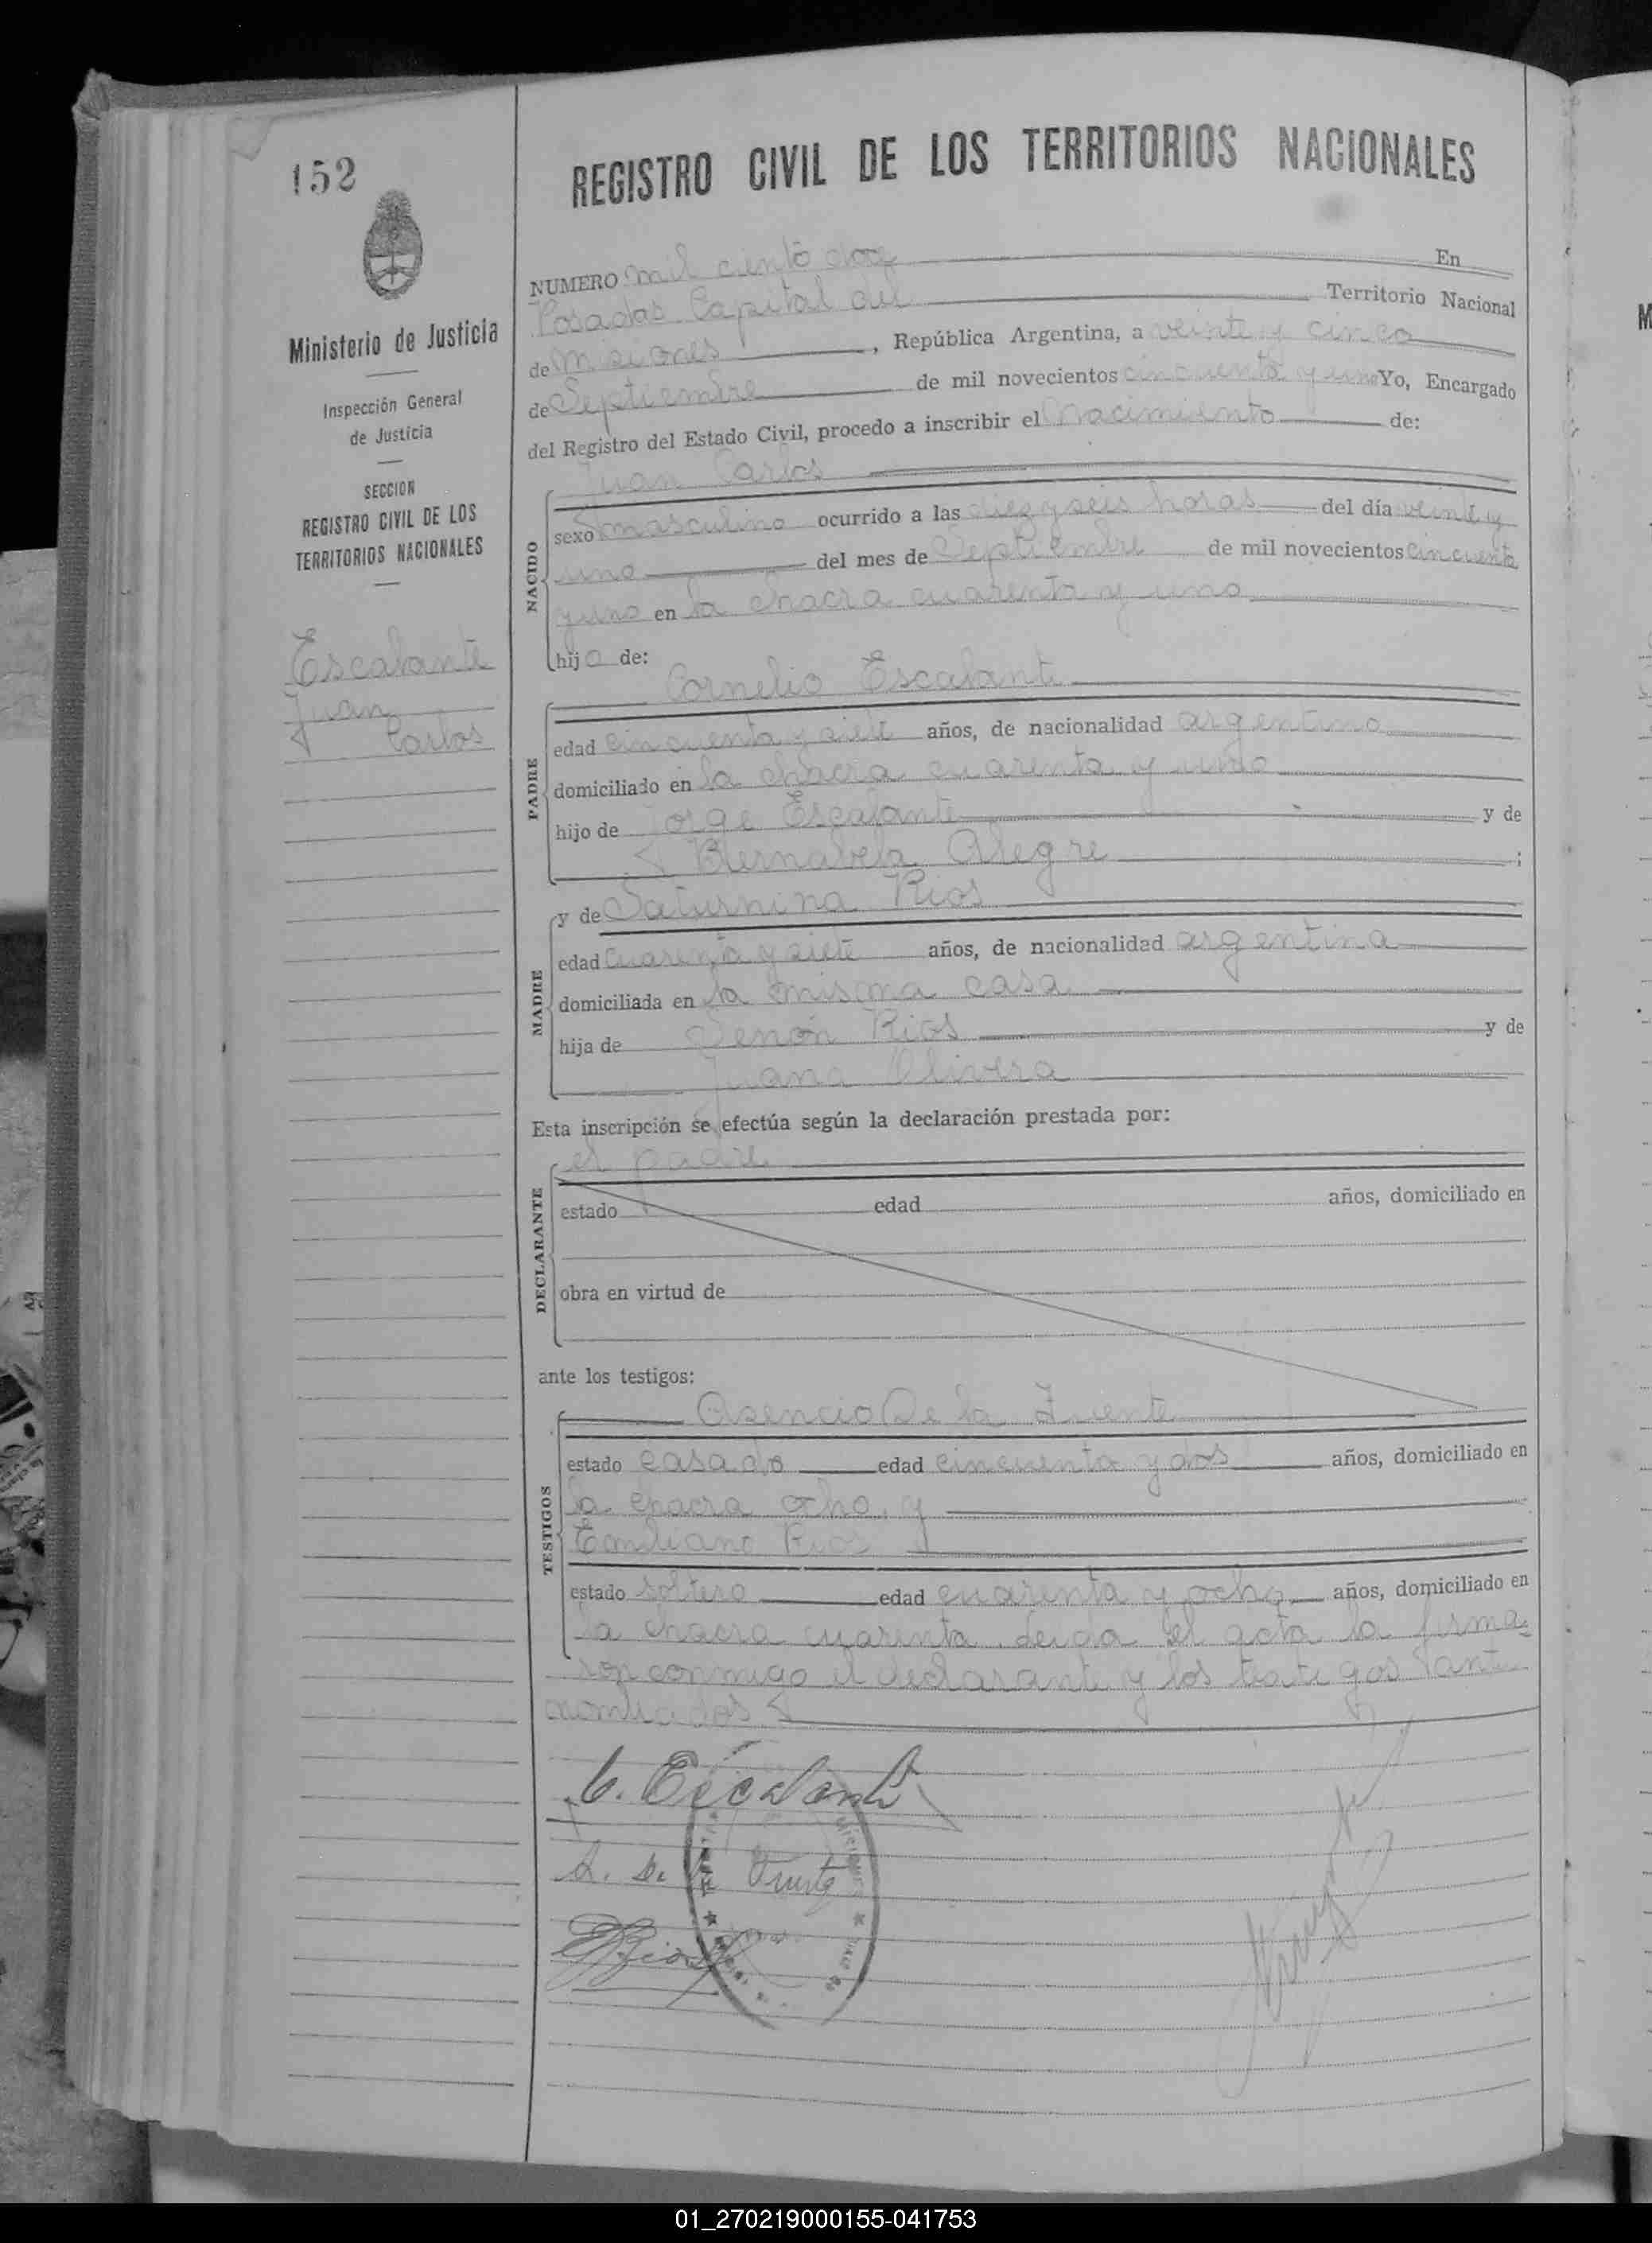 152
Ministerio de Justicia
Inspección General
de Justicia
SECCION
REGISTRO CIVIL DE LOS
TERRITORIOS NACIONALES
Escalante
Juan
Carlos
REGISTRO CIVIL DE LOS TERRITORIOS NACIONALES
NUMERO mil ciento doce En
Posadas Capital del Territorio Nacional
de Misiones, República Argentina, a veinte y cinco
de Septiembre de mil novecientos cincuenta y uno Yo, Encargado
del Registro del Estado Civil, procedo a inscribir el Nacimiento de:
Juan Carlos
NACIDO
sexo masculino ocurrido a las diez y seis horas del día veinte y
uno del mes de Septiembre de mil novecientos cincuenta
y uno en la chacra cuarenta y uno
hijo de:
Cornelio Escalante
PADRE
edad cincuenta y siete años, de nacionalidad argentino
domiciliado en la chacra cuarenta y uno
hijo de Jorge Escalante y de
Bernabela Alegre;
y de Saturnina Rios
MADRE
edad cuarenta y siete años, de nacionalidad argentina
domiciliada en la misma casa
hija de Zenón Rios y de
Juana Olivera
Esta inscripción se efectúa según la declaración prestada por:
el padre
DECLARANTE
estado edad años, domiciliado en
obra en virtud de
ante los testigos:
Asencio De la Fuente
TESTIGOS
estado casado edad cincuenta y dos años, domiciliado en
la chacra ocho, y
Emiliano Rios
estado soltero edad cuarenta y ocho años, domiciliado en
la chacra cuarenta. Leida el acta la firma=
ron conmigo el declarante y los testigos ante
nombrados
C. Escalante
A. De la Fuente
E Rios
01_270219000155-041753